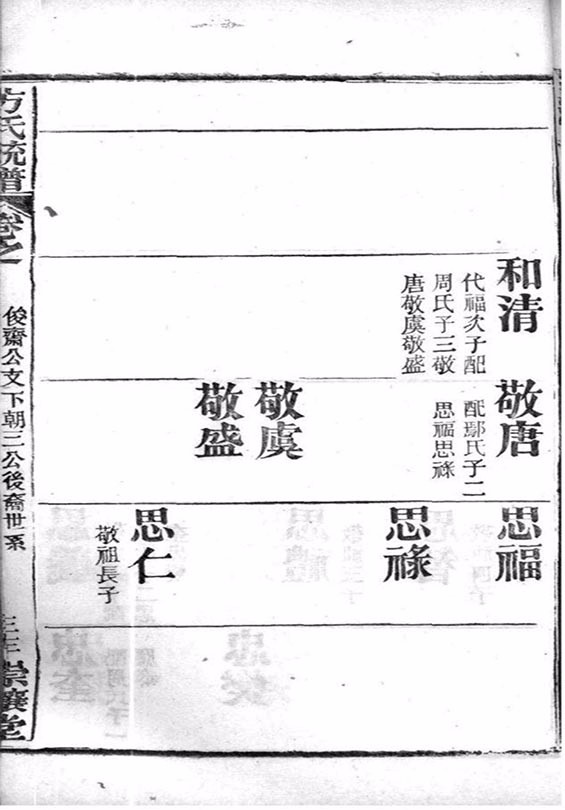 和清
代福次子配
周氏子三敬
唐敬虞敬盛
敬唐
配鄢氏子二
思福思祿
敬虞
敬盛
思福
思祿
思仁
敬祖長子
方氏統譜
卷之一
俊齋公文下朝三公後裔世系
崇讓堂